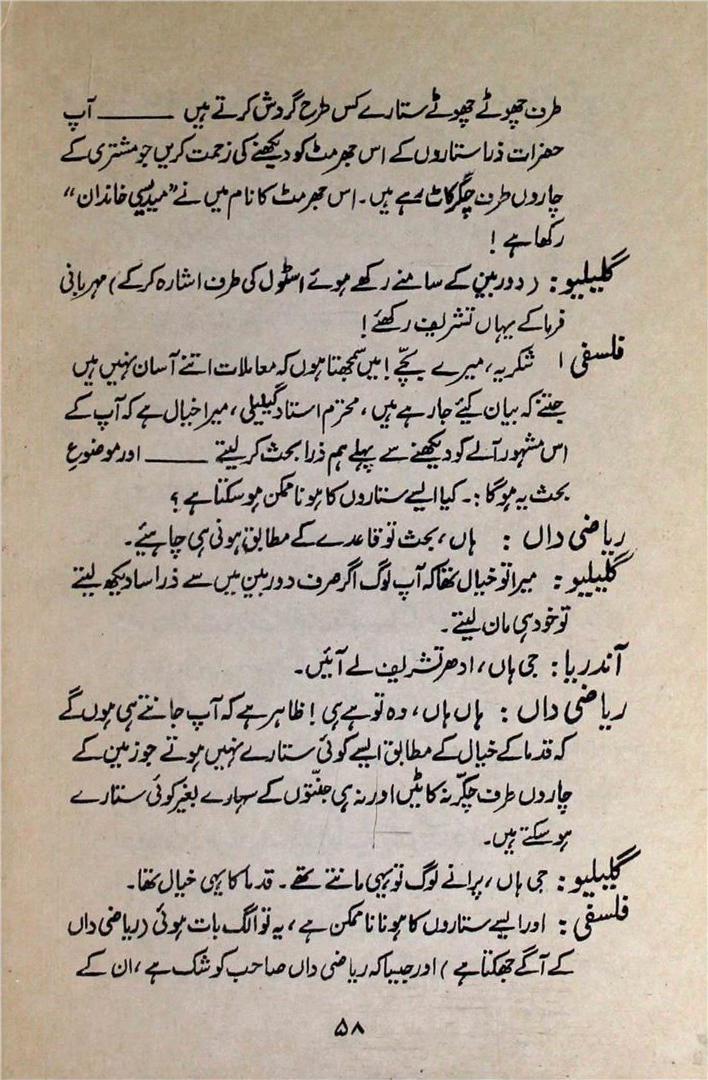 طرف چھوٹے چھوٹے ستارے کس طرح گردش کرتے ہیں ——— آپ
حضرات ذرا ستاروں کے اس جھرمٹ کو دیکھنے کی زحمت کریں جو مشتری کے
چاروں طرف چکّر کاٹ رہے ہیں۔ اس جھرمٹ کا نام میں نے ”میدیسی خاندان“
رکھا ہے !
گلیلیو: (دوربین کے سامنے رکھے ہوئے اسٹول کی طرف اشارہ کرکے) مہربانی
فرما کے یہاں تشریف رکھئے !
فلسفی ا شکریہ، میرے بچّے ! میں سمجھتا ہوں کہ معاملات اتنے آسان نہیں ہیں
جتنے کہ بیان کیے جا رہے ہیں، محترم استاد گیلیلی، میرا خیال ہے کہ آپ کے
اس مشہور آلے کو دیکھنے سے پہلے ہم ذرا بحث کر لیتے ——— اور موضوعِ
بحث یہ ہوگا :۔ کیا ایسے ستاروں کا ہونا ممکن ہو سکتا ہے ؟
ریاضی داں : ہاں، بحث تو قاعدے کے مطابق ہونی ہی چاہیئے۔
گلیلیو: میرا تو خیال تھا کہ آپ لوگ اگر صرف دوربین میں سے ذرا سا دیکھ لیتے
تو خود ہی مان لیتے۔
آندریا: جی ہاں، ادھر تشریف لے آئیں۔
ریاضی داں : ہاں ہاں، وہ تو ہے ہی ! ظاہر ہے کہ آپ جانتے ہی ہوں گے
کہ قدما کے خیال کے مطابق ایسے کوئی ستارے نہیں ہوتے جو زمین کے
چاروں طرف چکّر نہ کاٹیں اور نہ ہی جنّتوں کے سہارے بغیر کوئی ستارے
ہو سکتے ہیں۔
گلیلیو: جی ہاں، پرانے لوگ تو یہی مانتے تھے۔ قدما کا یہی خیال تھا۔
فلسفی: اور ایسے ستاروں کا ہونا ناممکن ہے، یہ تو الگ بات ہوئی (ریاضی داں
کے آگے جھکتا ہے) اور جیسا کہ ریاضی داں صاحب کو شک ہے، ان کے
۵۸